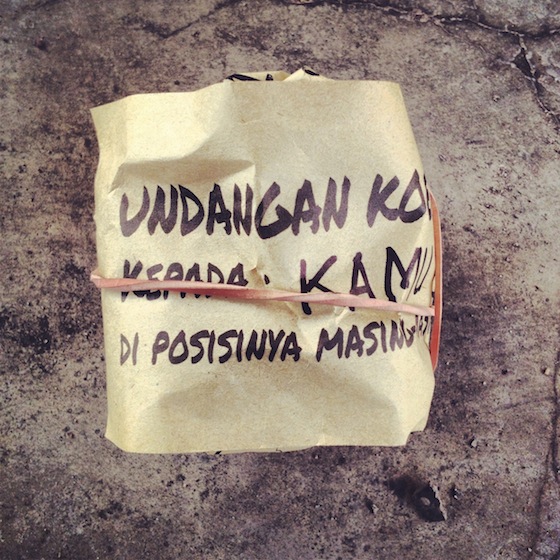 UNDANGAN KO
KEPADA KAMU
DI POSISINYA MASING